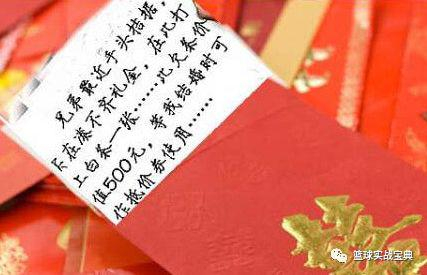 兄弟最近手头拮据，
实在凑不齐礼金，在此打
上白条一张……此欠条价
值500元，等我结婚时可
作抵价券使用……
篮球实战宝典